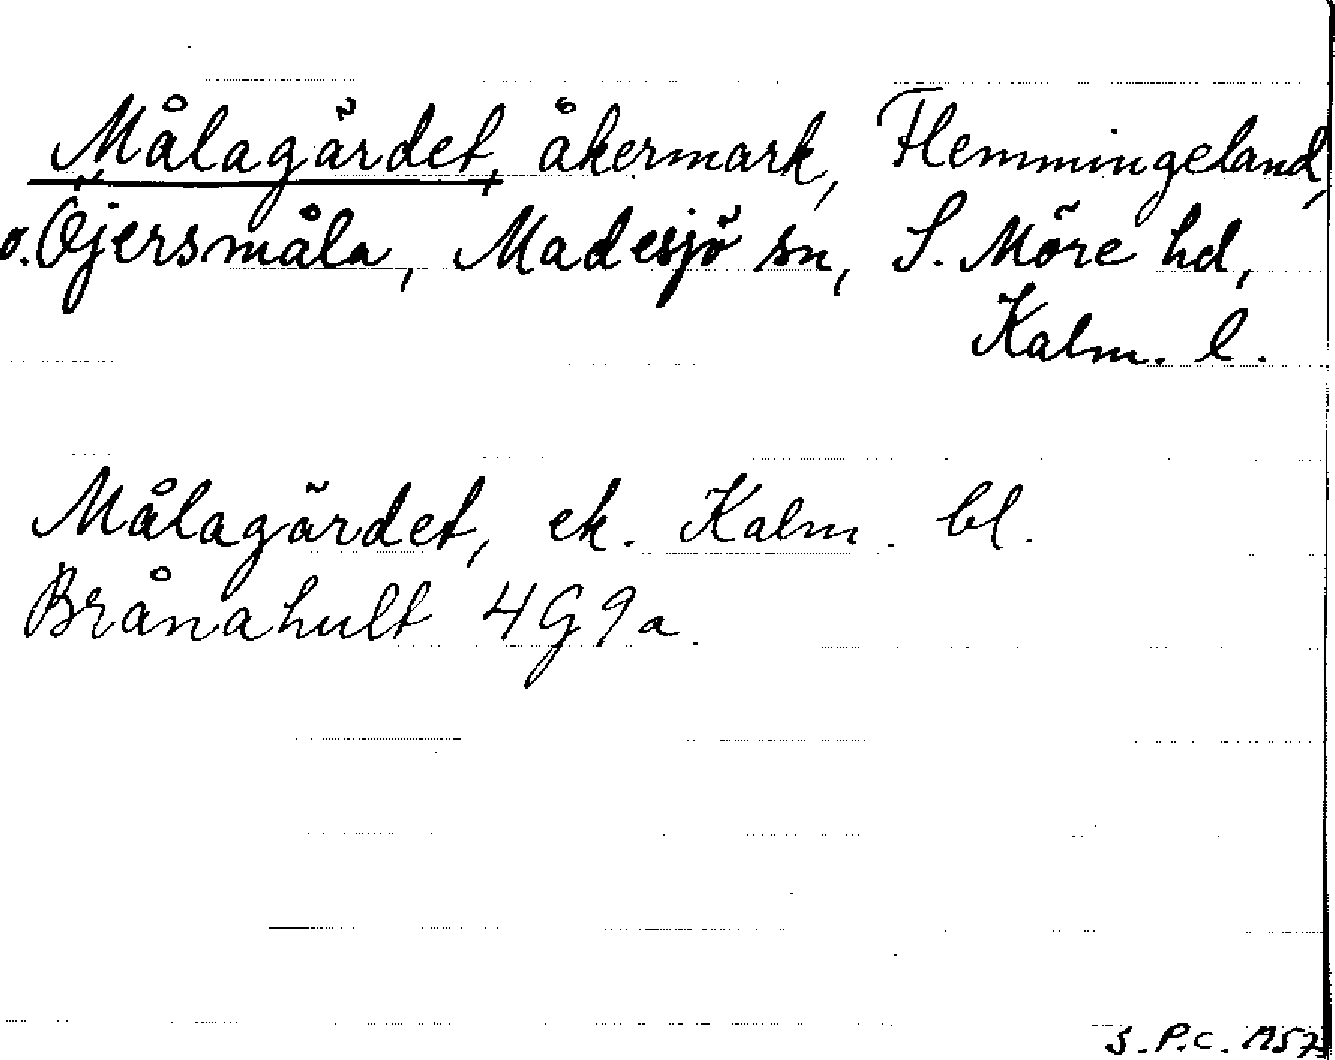 Målagärdet, åkermark, Flemmingeland,
o. Öjersmåla, Madesjö sn, S. Möre hd,
Kalm. l.
Målagärdet, ek. Kalm. bl.
Brånahult 4G9a.
S.P.C. 1957